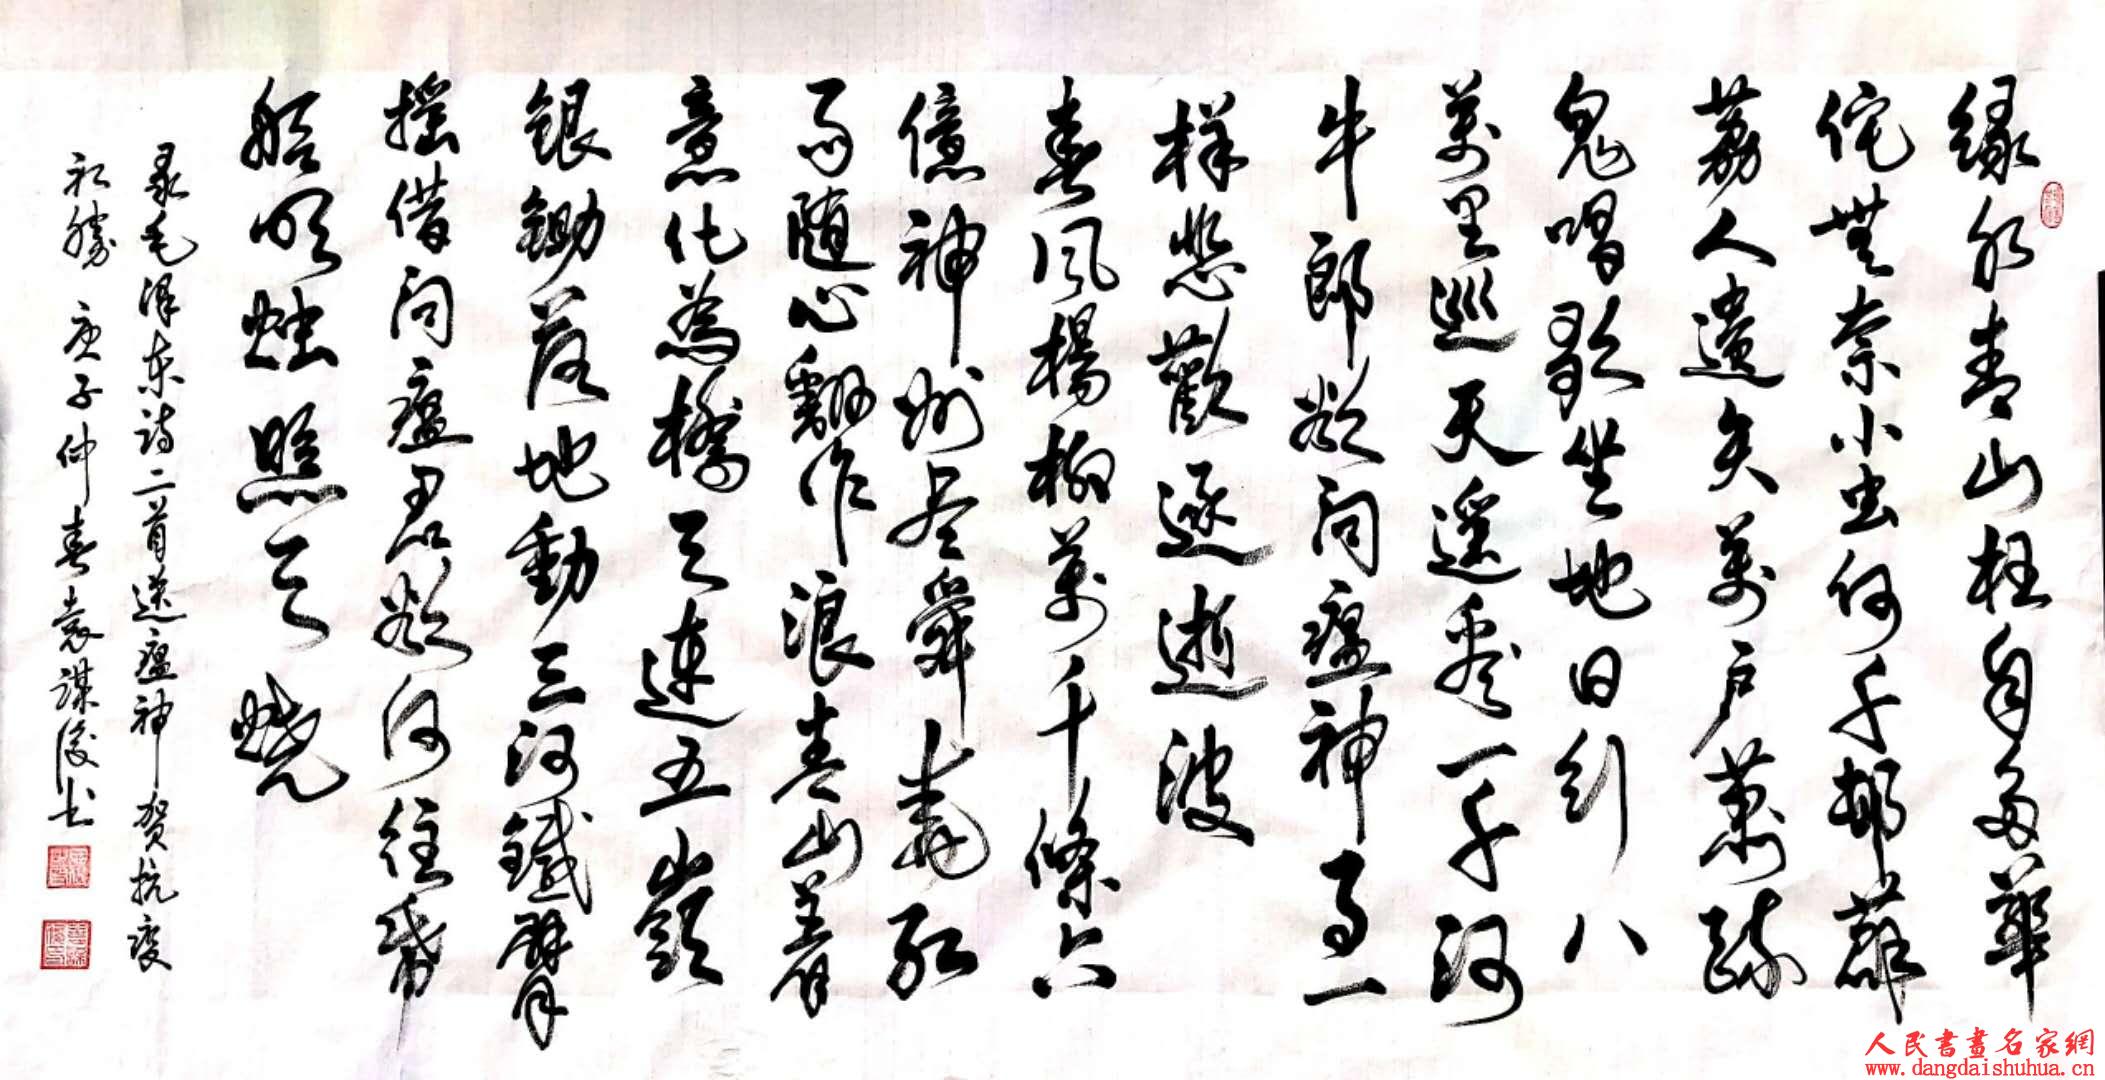 緑水青山枉自多華
佗無奈小虫何千邨薜
荔人遺矢萬户蕭疏
鬼唱歌坐地日行八
萬里巡天遥看一千河
牛郎欲问瘟神事一
樣悲歡逐逝波
春風楊柳萬千條六
億神州尽舜堯红
雨随心翻作浪青山着
意化為橋天連五嶺
銀鋤落地動三河鐵臂
摇借问瘟君欲何往帋
船明烛照天燒
录毛泽东诗二首送瘟神贺抗疫
初勝 庚子仲春袁谋书
人民書畫名家網
www.dangdaishuhua.com.cn